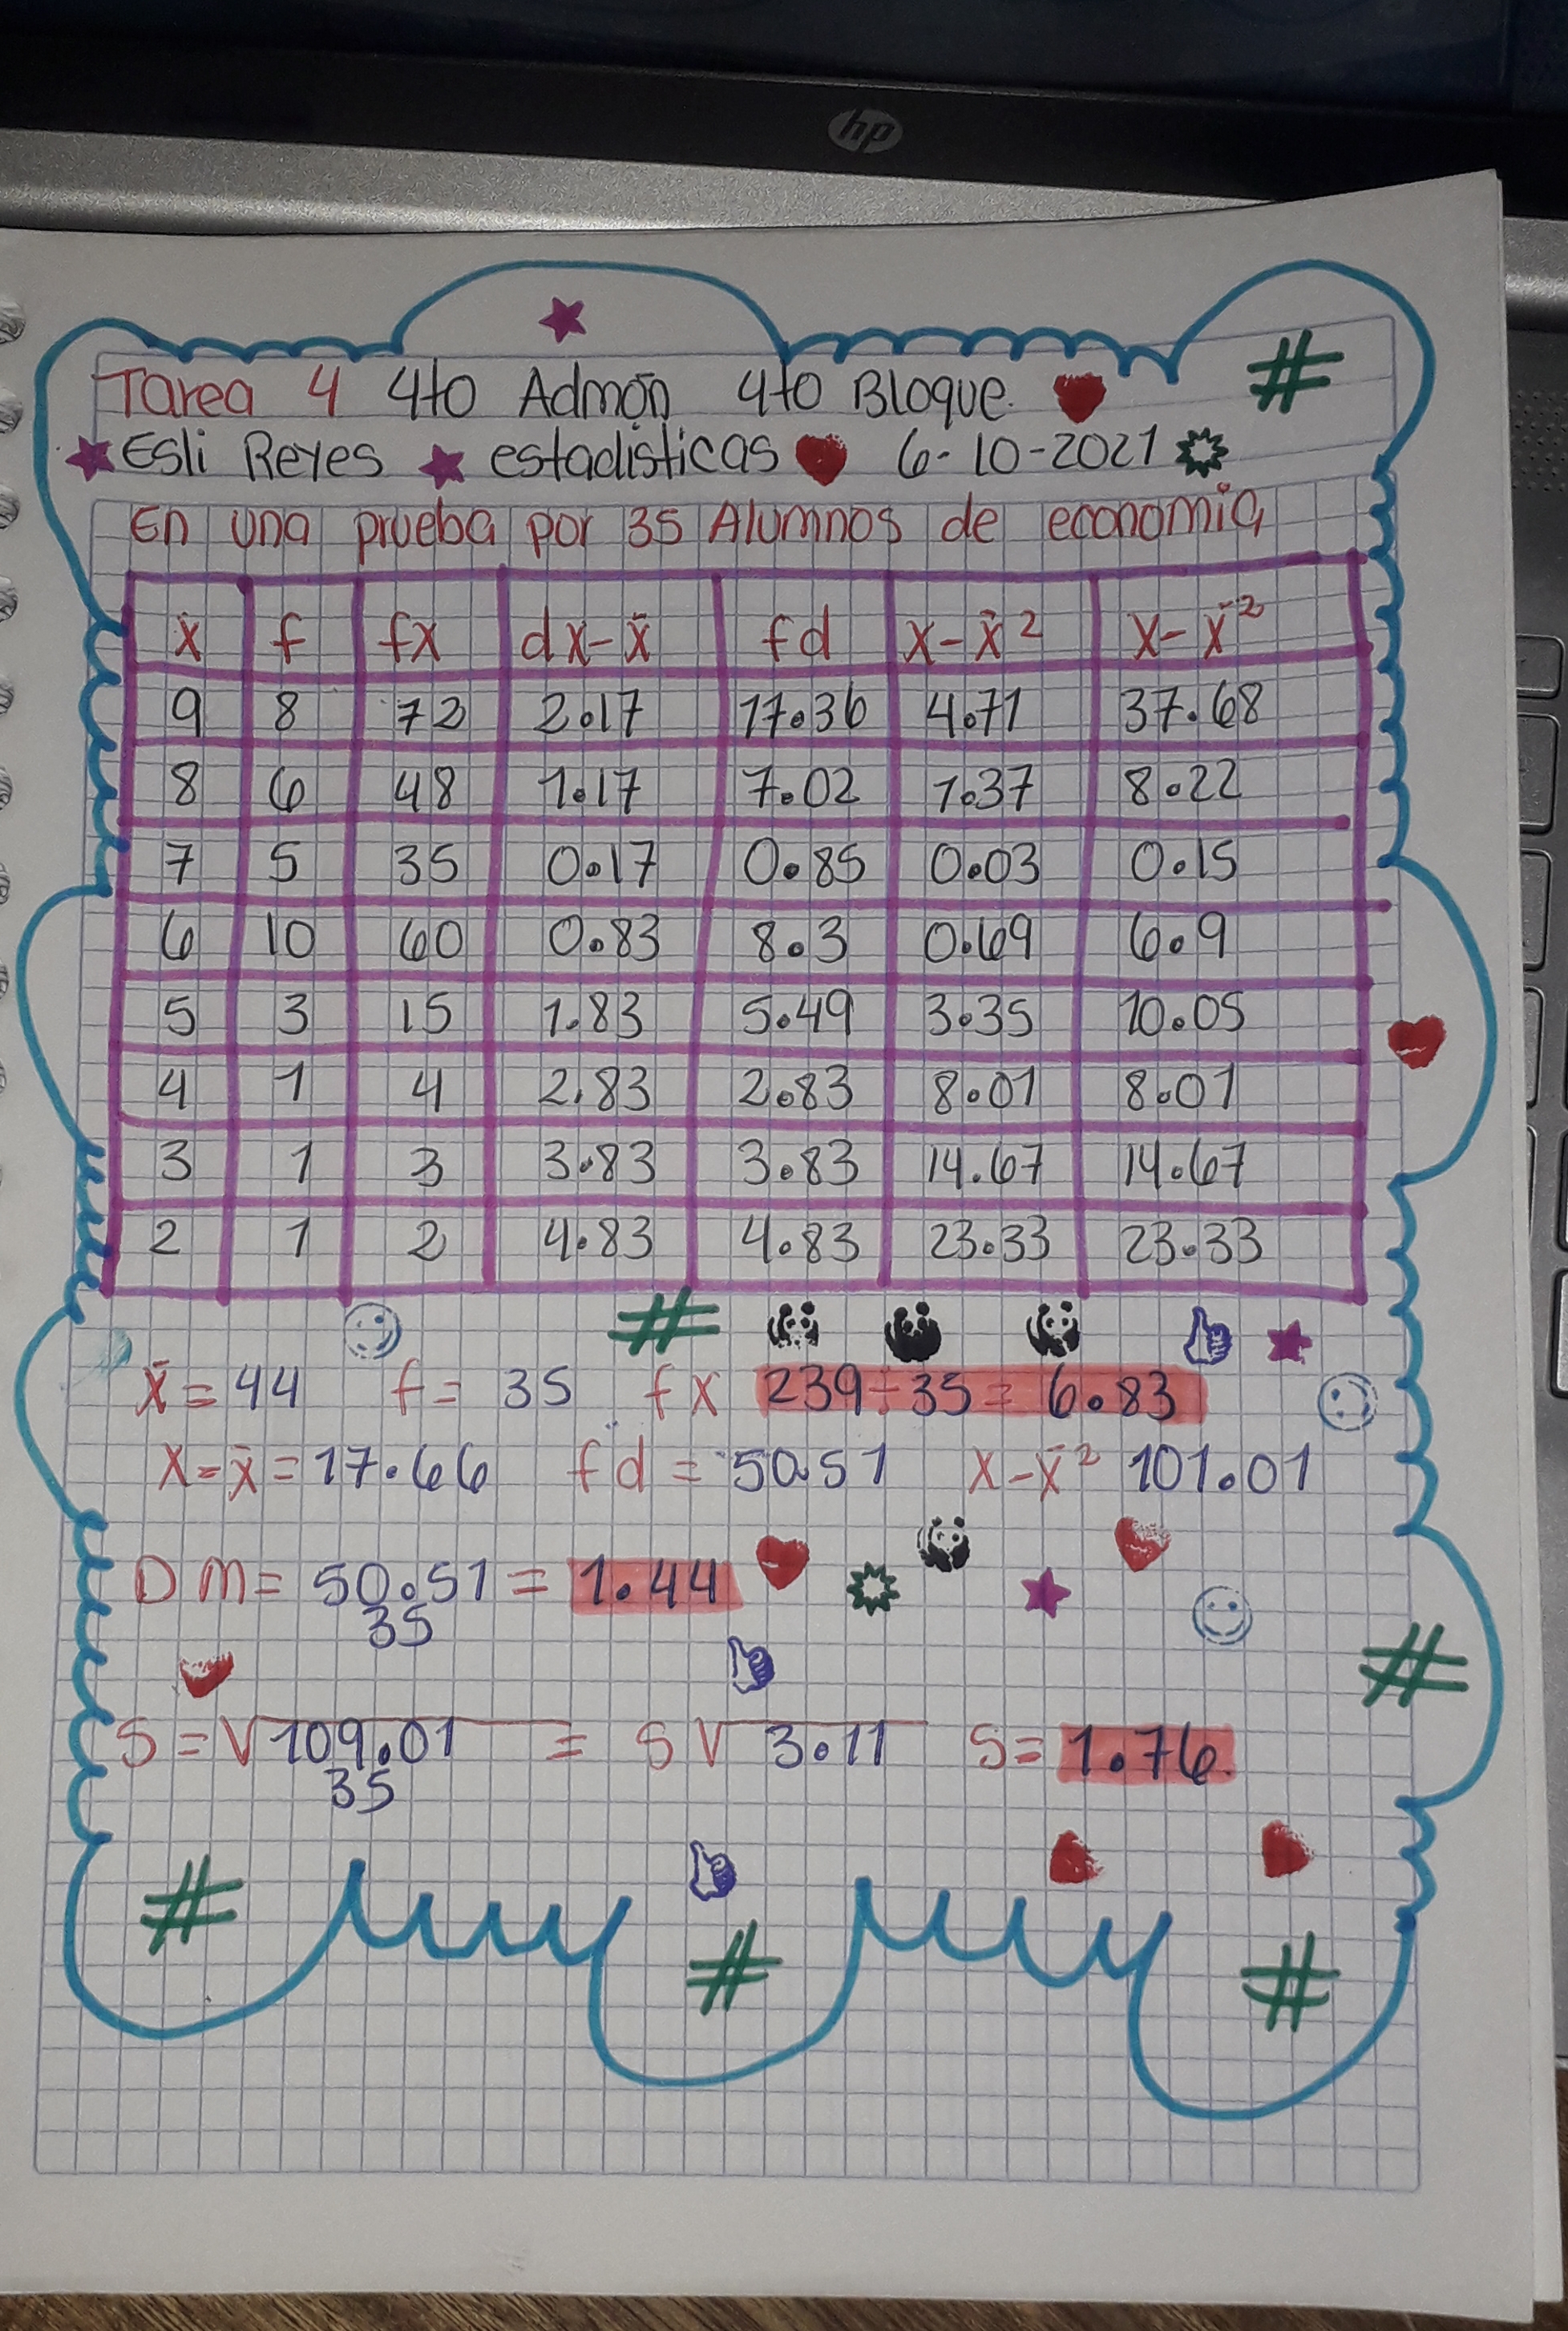 hp
Tarea 4 4to Admón 4to Bloque.
Esli Reyes estadisticas 6-10-2021
En una prueba por 35 Alumnos de economia
x f fx dx-x̄ fd x-x̄² x-x̄²
9 8 72 2.17 17.36 4.71 37.68
8 6 48 1.17 7.02 1.37 8.22
7 5 35 0.17 0.85 0.03 0.15
6 10 60 0.83 8.3 0.69 6.9
5 3 15 1.83 5.49 3.35 10.05
4 1 4 2.83 2.83 8.01 8.01
3 1 3 3.83 3.83 14.67 14.67
2 1 2 4.83 4.83 23.33 23.33
x̄=44 f=35 fx 239÷35=6.83
x-x̄=17.66 fd=50.51 x-x̄² 101.01
DM=50.51=1.44
35
S=√109.01 = S√3.11 S=1.76.
35